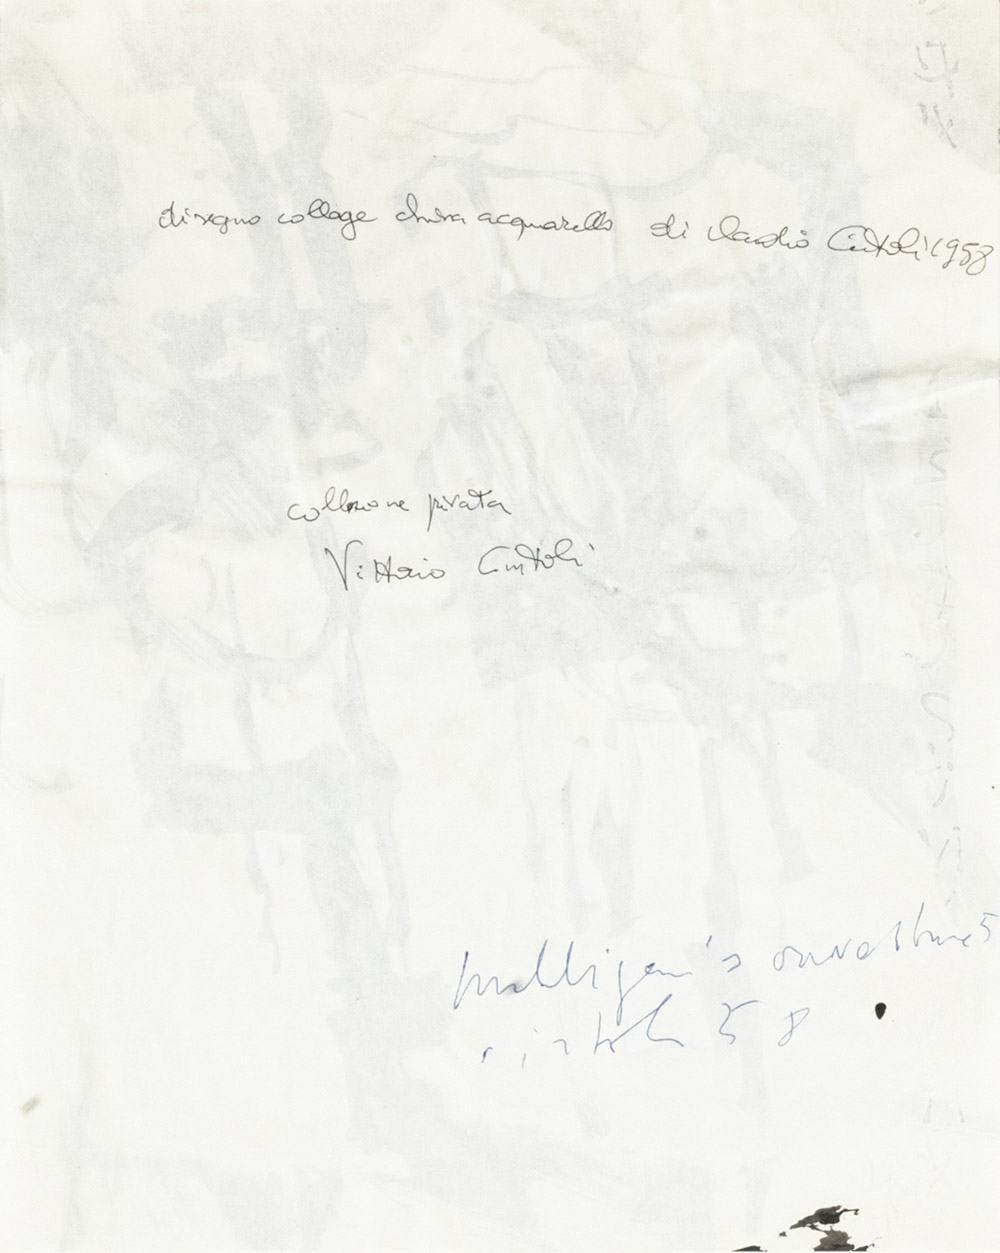 disegno collage china acquarello di Claudio Cintoli 1958
collezione privata
Vittorio Cintoli
mulligan's
cintoli 58